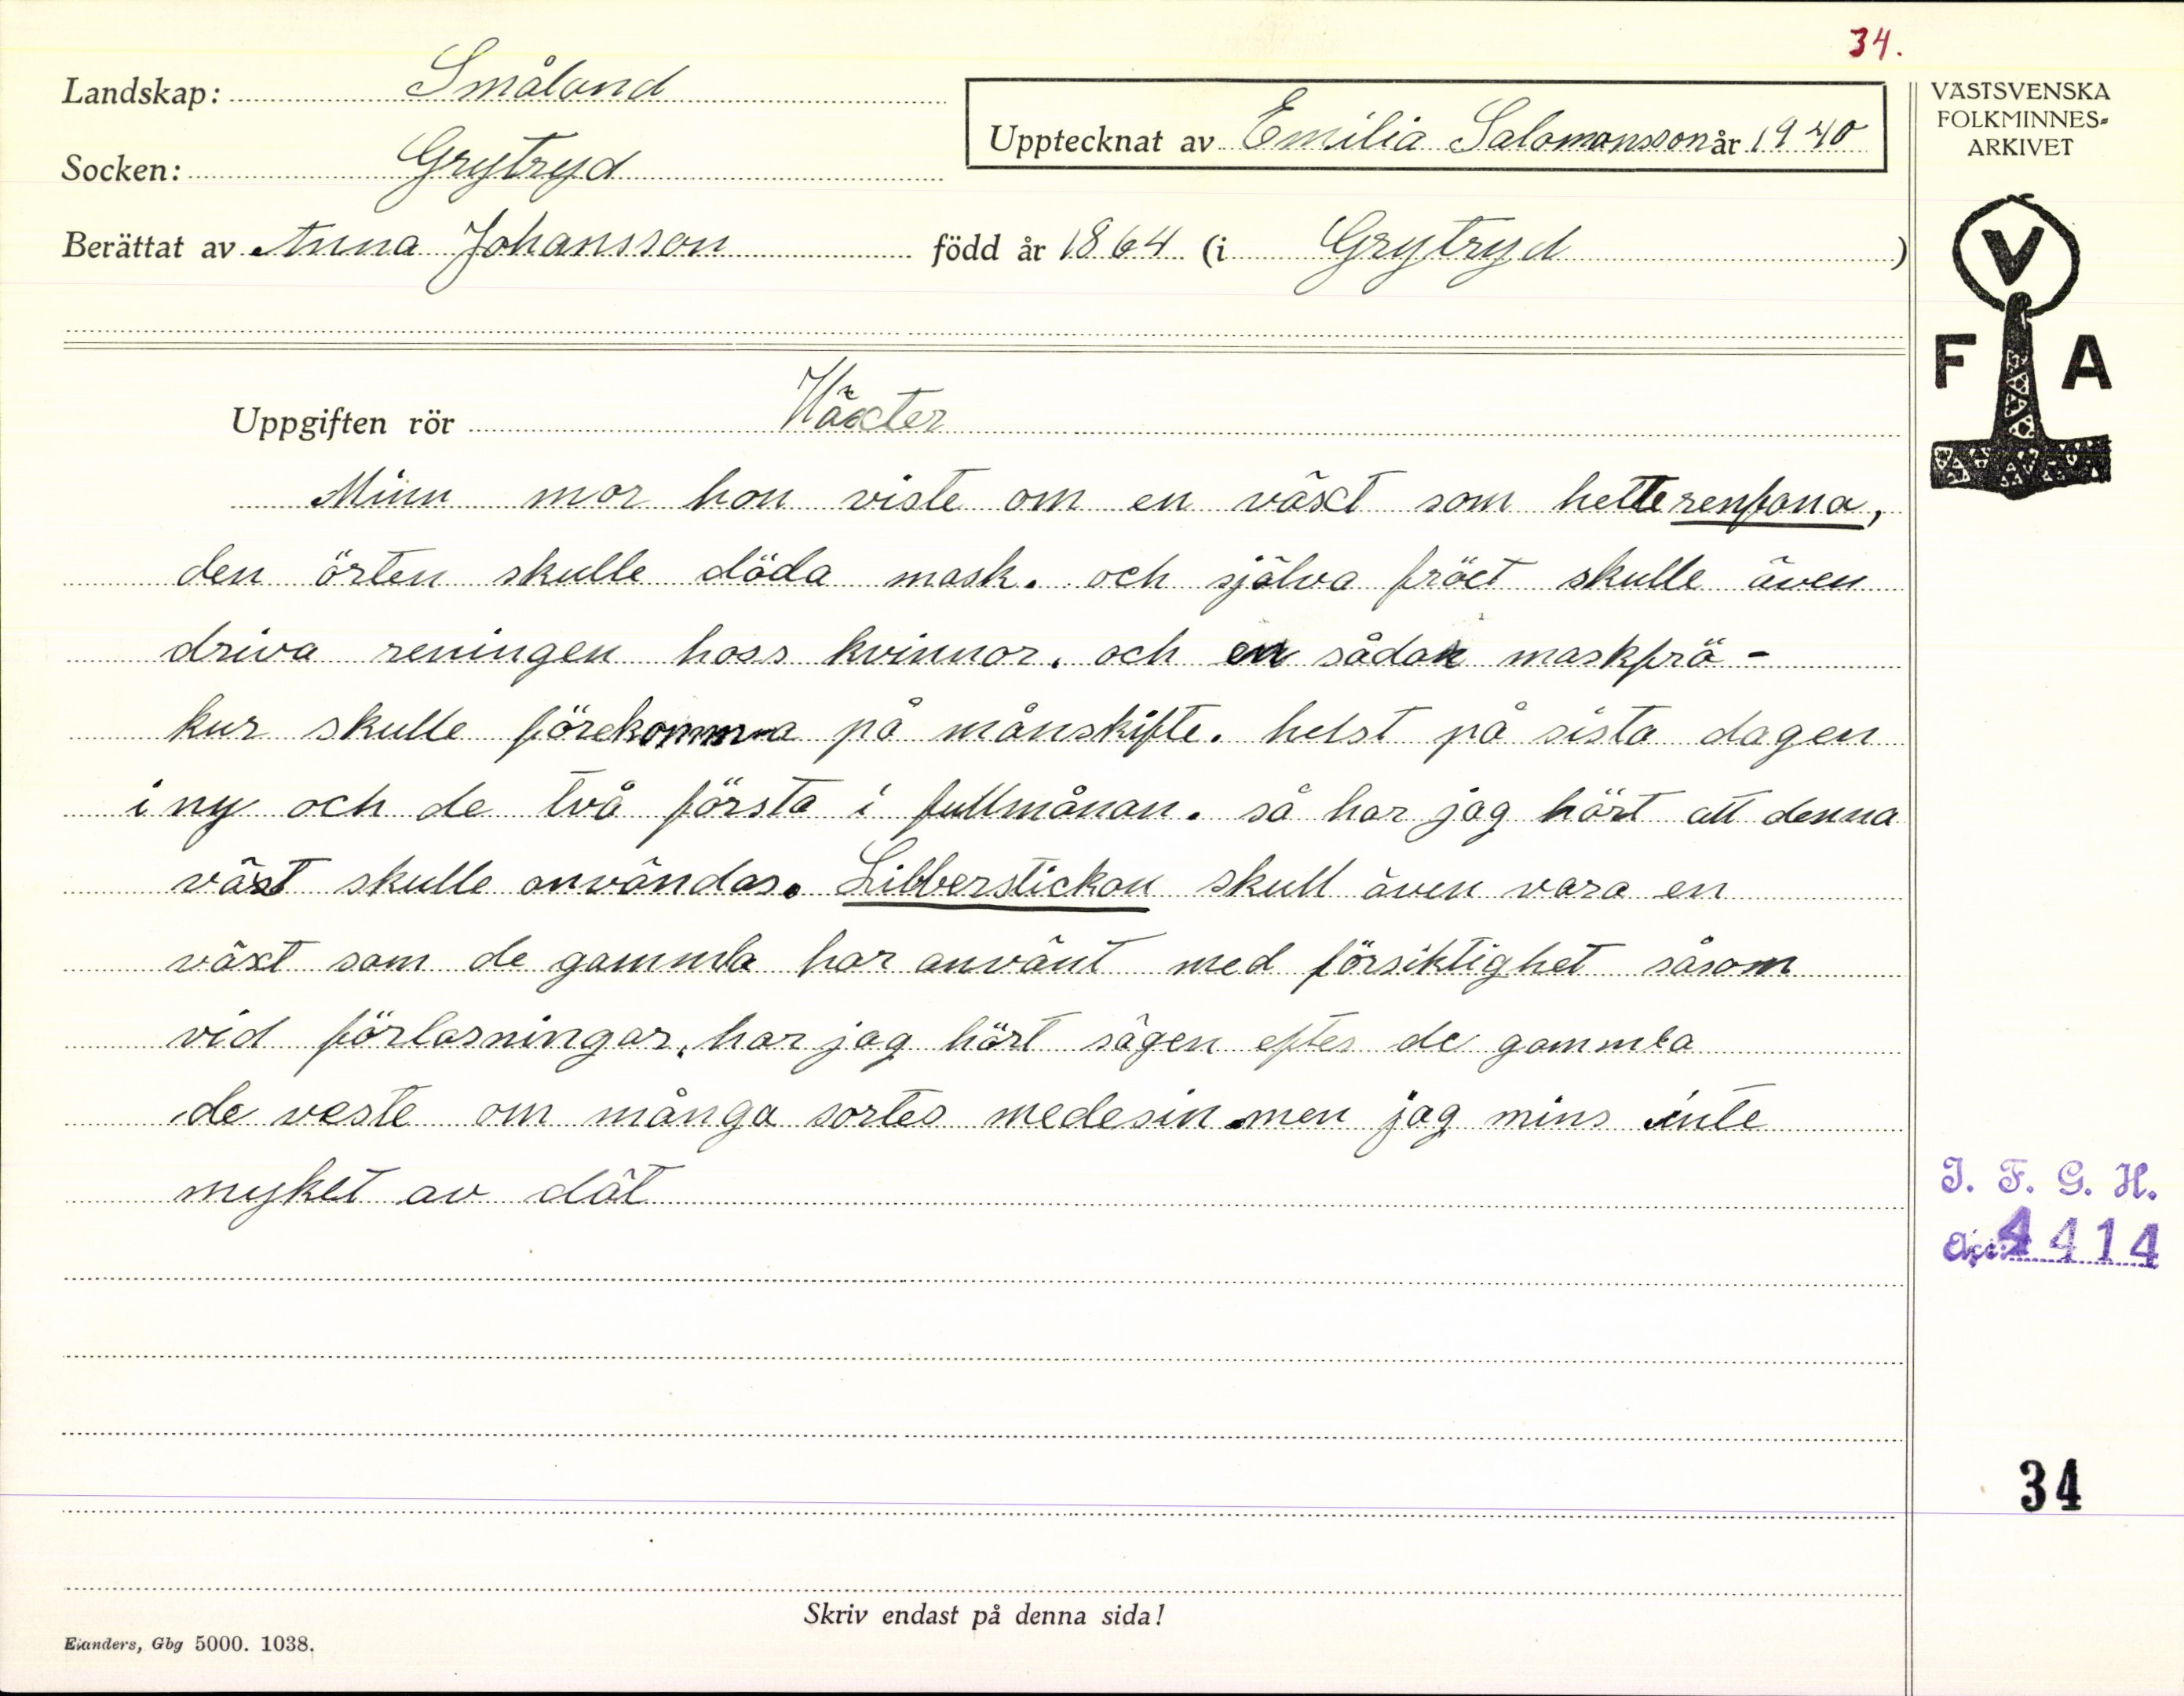 34.
Landskap: Småland
Upptecknat av Emilia Salomonsson år 1940
Socken: Grytryd
Berättat av Anna Johansson född år 1864 (i Grytryd)
VÄSTSVENSKA
FOLKMINNES-
ARKIVET
V
F A
Uppgiften rör Växter
Minn mor hon viste om en växt som hette renfana,
den örten skulle döda mask. och själva fröet skulle även
driva reningen hoss kvinnor. och en sådan maskfrö-
kur skulle förekomma på månskifte. helst på sista dagen
i ny och de två första i fullmånan. så har jag hört att denna
växt skulle användas. Libberstickan skull även vara en
växt som de gammla har använt med försiktighet såsom
vid förlasningar, har jag hört sägen efter de gammla
de veste om många sortes medesin. men jag mins inte
myket av dät
I. F. G. H.
Acc. 4414
34
Skriv endast på denna sida!
Elanders, Gbg 5000. 1038.